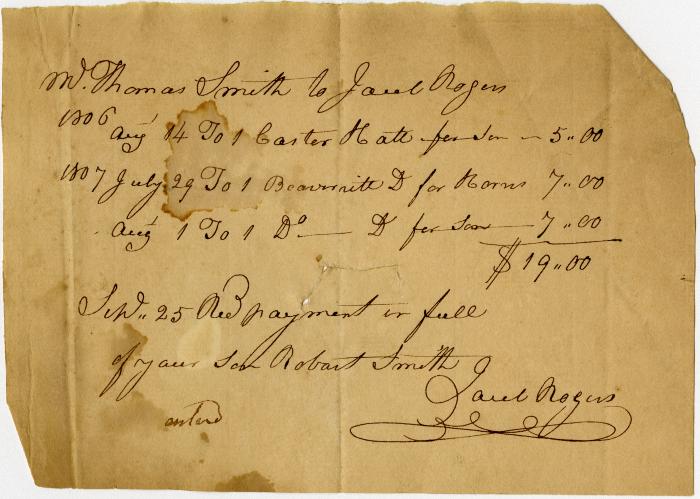 Mr. Thomas Smith to Jarel Rogers
1806 Aug 14 To 1 Caster Hatt for Son - 5,,00
1807 July 29 To 1 Beavmitt D for Horns 7,,00
Aug 1 To 1 Do — D for Son — 7,,00
$ 19,,00
Sept,, 25 Recd payment in full
of your Son Robart Smith
Jarel Rogers